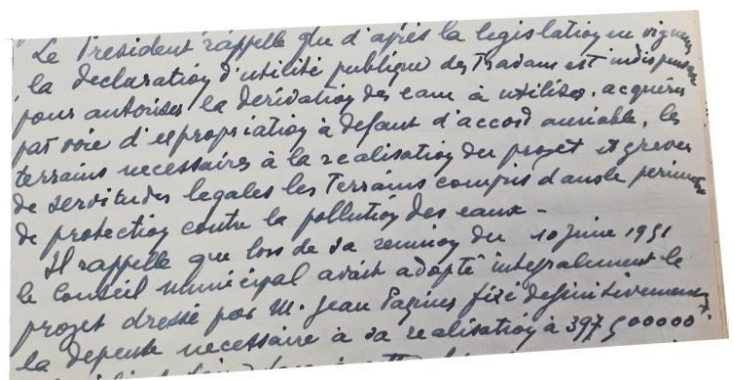 Le President rappelle que d'après la legislation en vigueur
la declaration d'utilité publique des Travaux est indispensable
pour autoriser la derivation des eaux à utiliser, acquérir
par voie d'expropriation à defaut d'accord amiable, les
terrains necessaires à la realisation du projet et grever
de servitudes legales les Terrains compris dans le perimetre
de protection contre la pollution des eaux -
Il rappelle que lors de sa reunion du 10 juin 1951
le Conseil municipal avait adopté integralement le
projet dressé par M. Jean fixé definitivement
la depense necessaire à sa realisation à 397500000